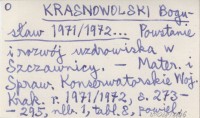 O KRASNOWOLSKI Bogu-
sław 1971/1972... Powstanie
i rozwój uzdrowiska w
Szczawnicy. – Mater. i
Spraw. Konserwatorskie Woj.
Krak. r. 1971/1972, s. 273-
-295, nlb. 1, tabl. 8, powiel.